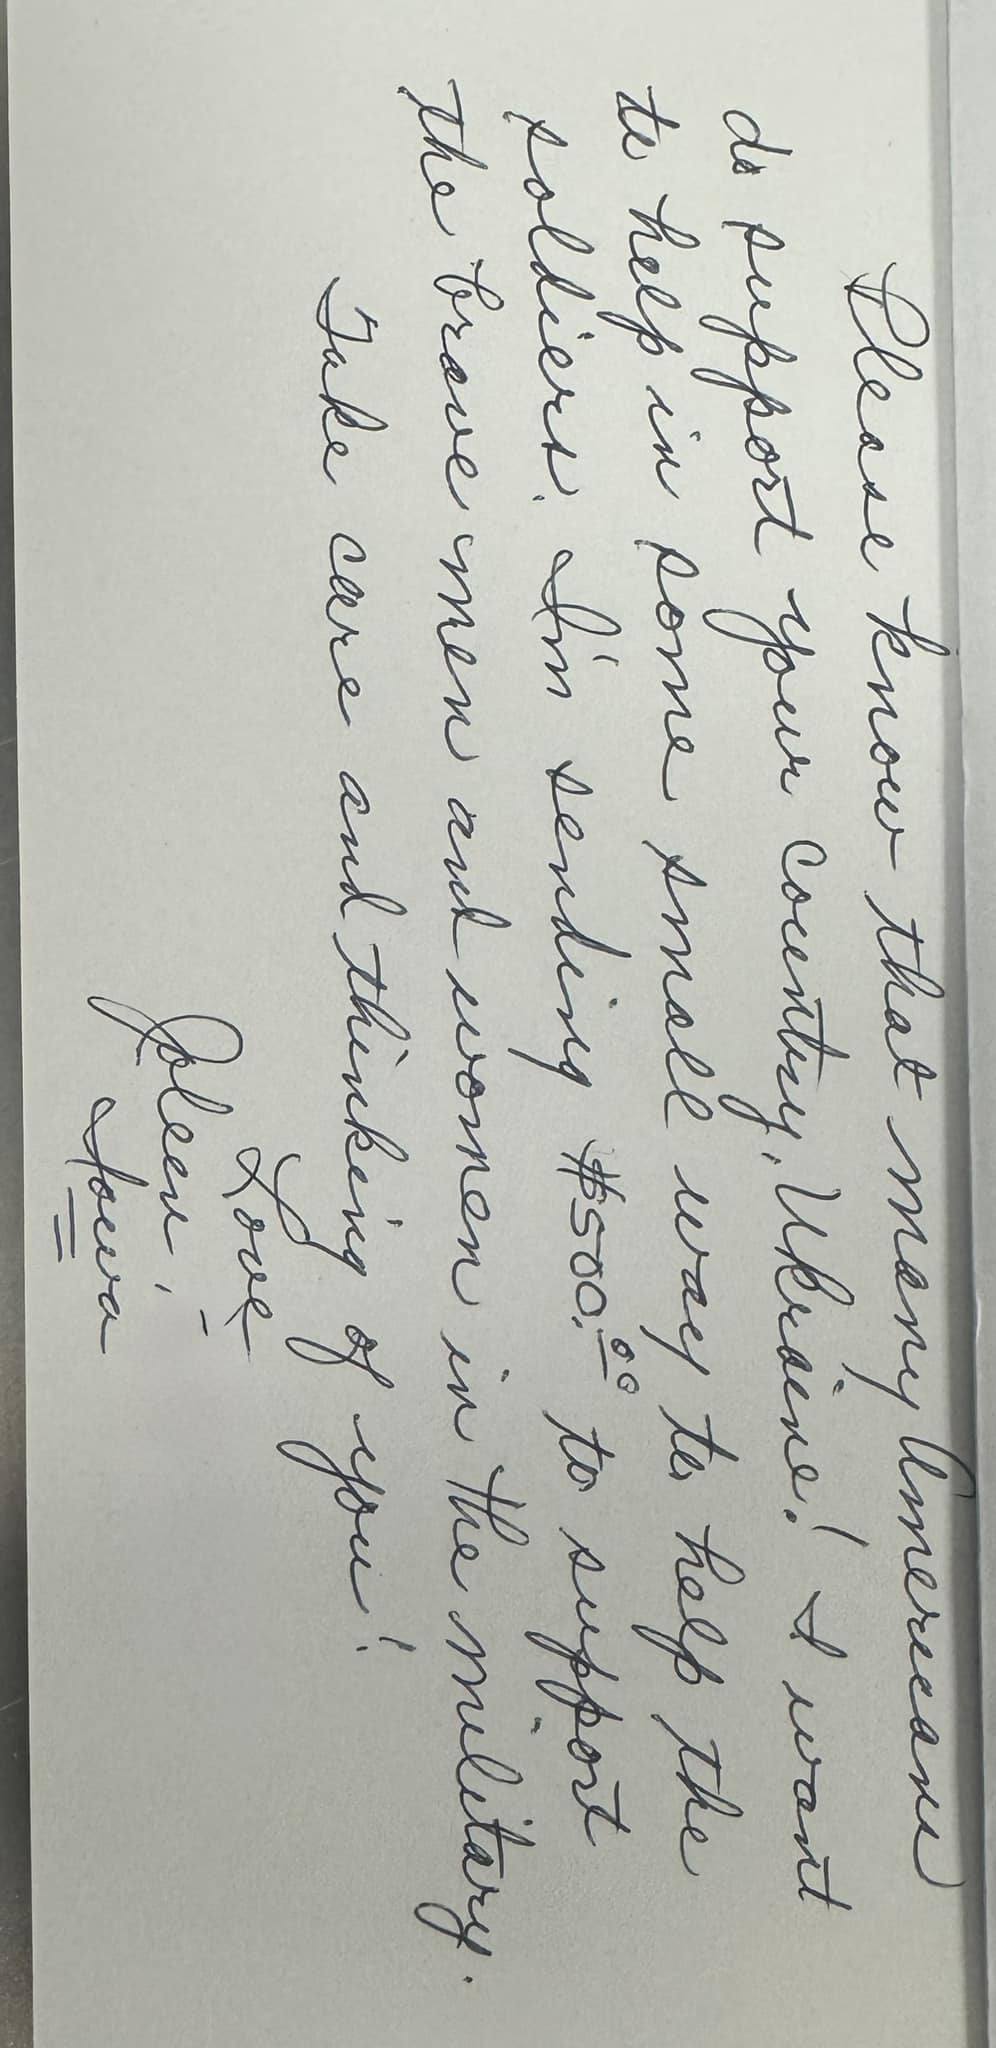 Please know that many Americans
do support your country, Ukraine! I want
to help in some small way to help the
soldiers. I'm sending $500.00 to support
the brave men and women in the military.
Take care and thinking of you!
Love
Joleen,
Iowa